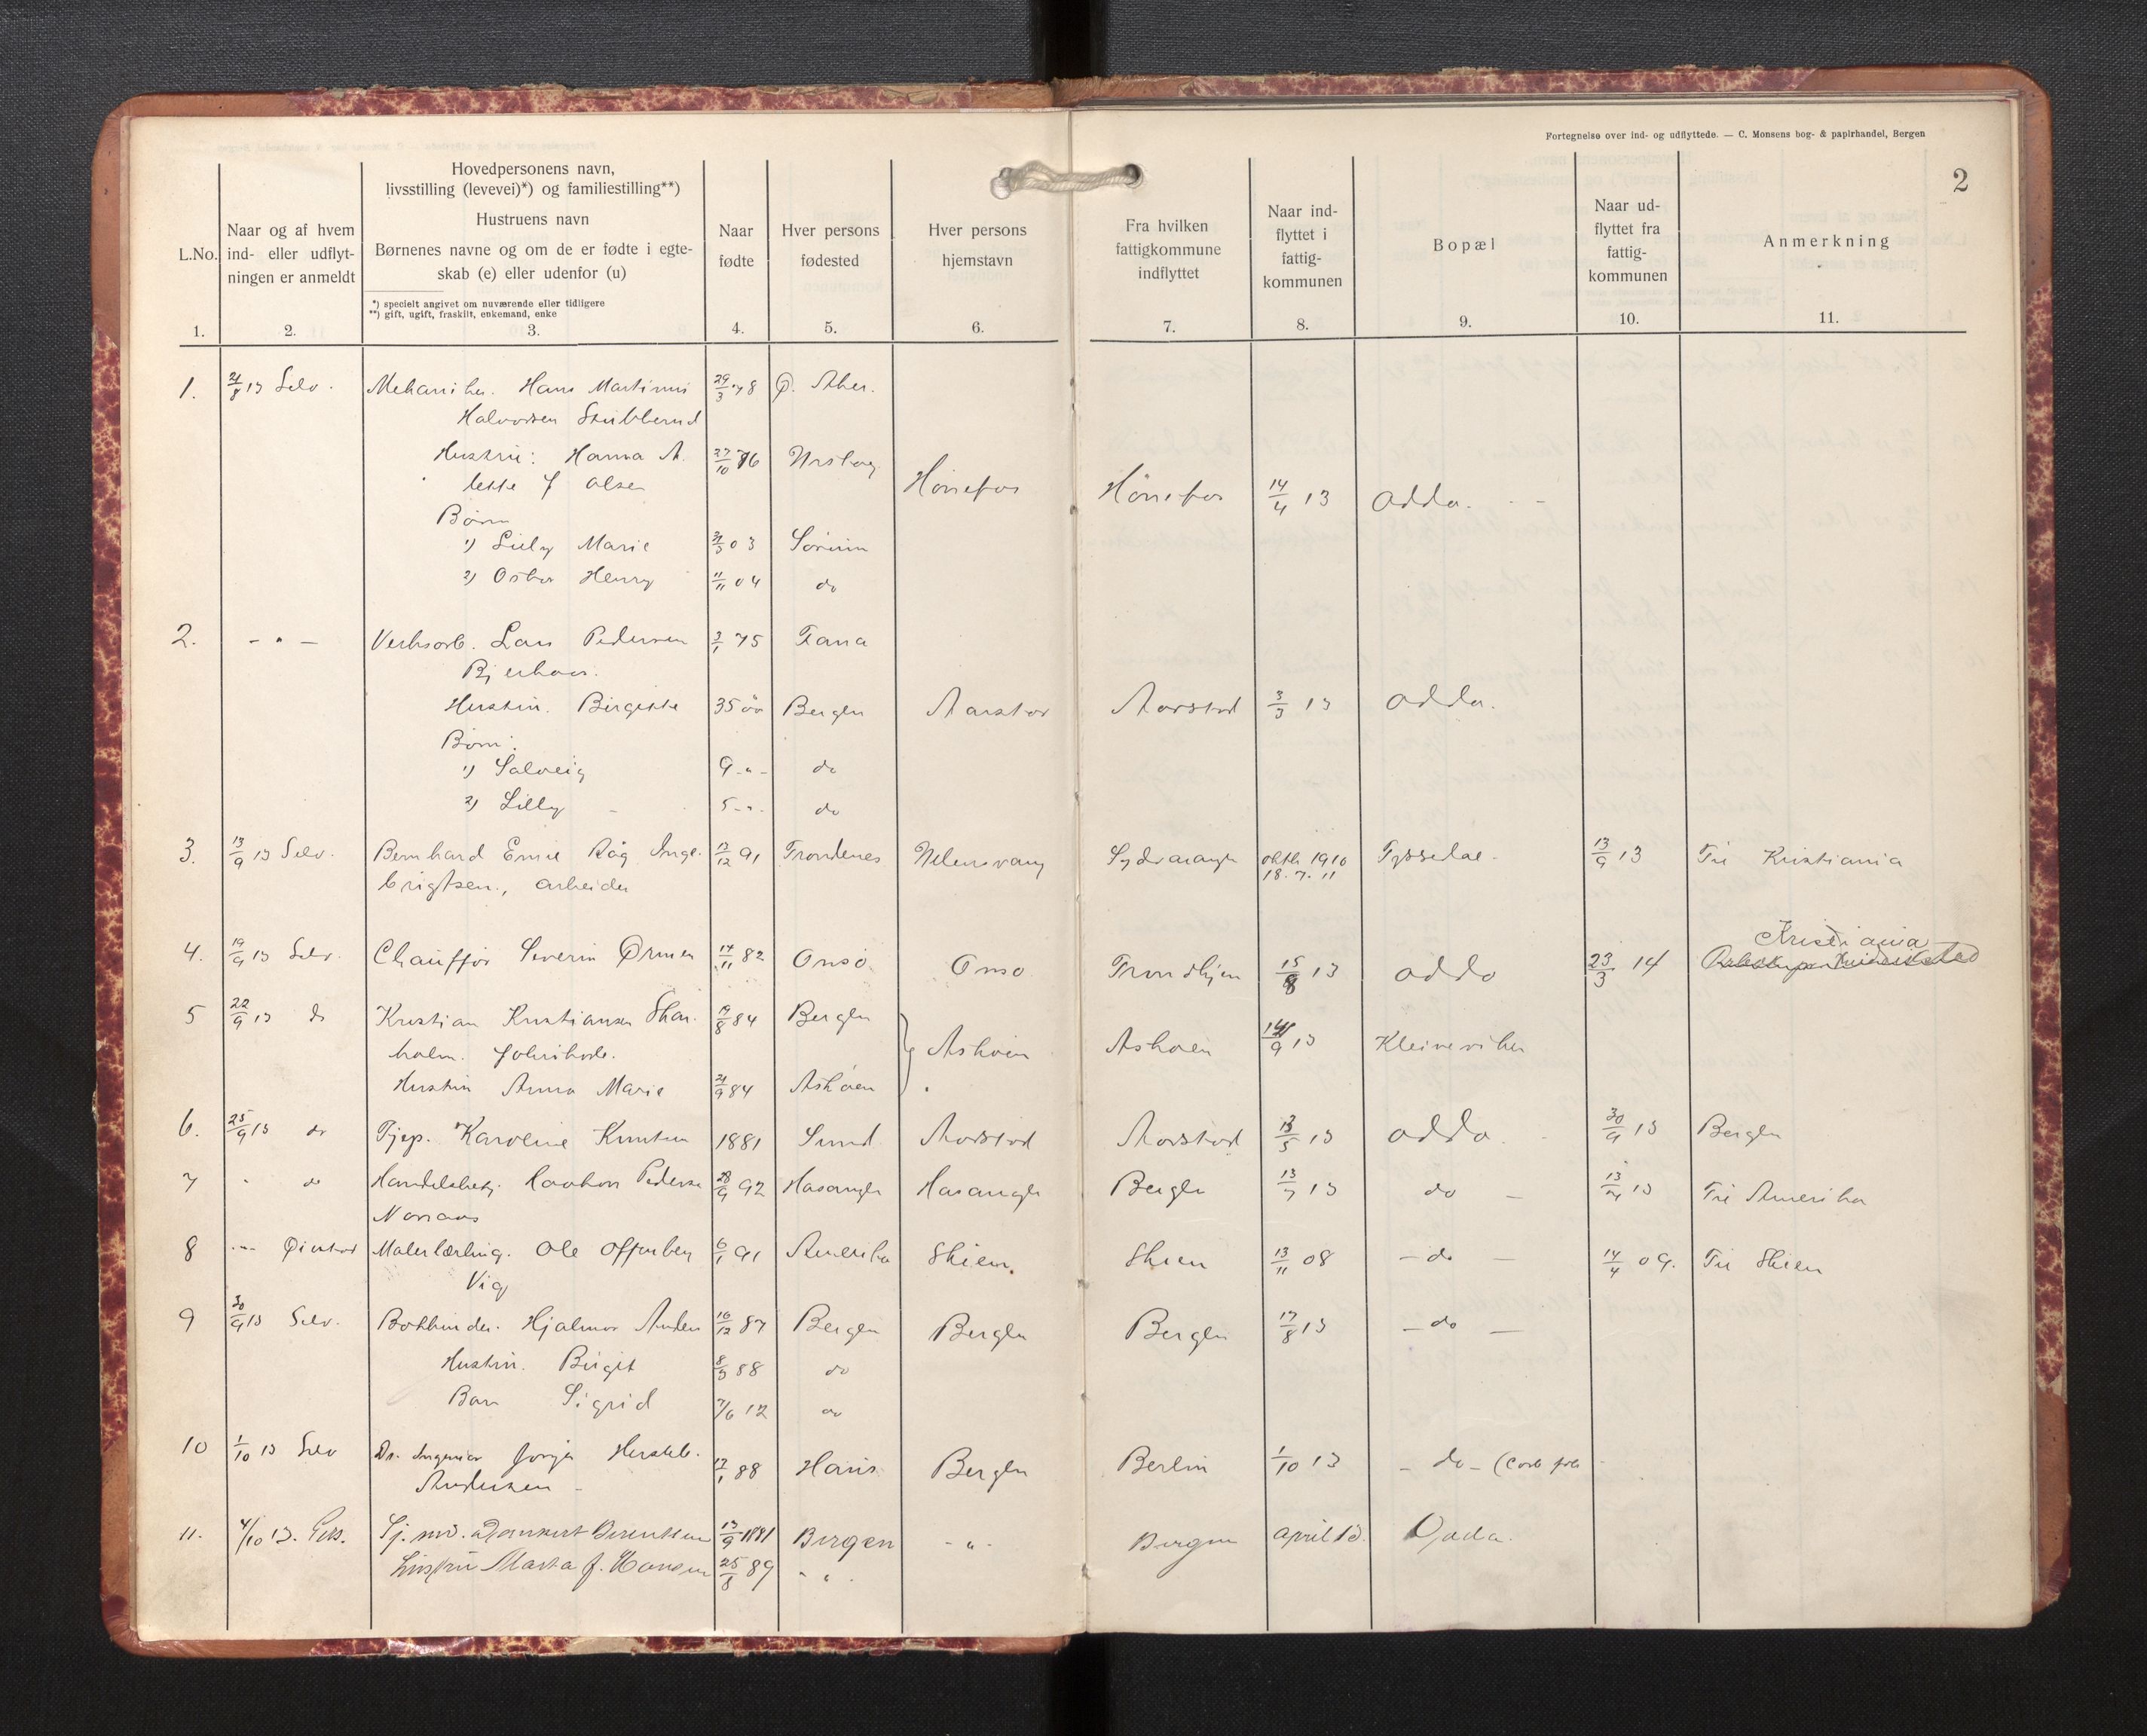 Fortegnelse over ind- og udflyttede. — C. Monsens bog- & papirhandel, Bergen
2
L.No.
1.
Naar og af hvem
ind- eller udflyt-
ningen er anmeldt
2.
Hovedpersonens navn,
livsstilling (levevei)*) og familiestilling**)
Hustruens navn
Børnenes navne og om de er fødte i egte-
skab (e) eller udenfor (u)
*) specielt angivet om nuværende eller tidligere
**) gift, ugift, fraskilt, enkemand, enke
3.
Naar
fødte
4.
Hver persons
fødested
5.
Hver persons
hjemstavn
6.
Fra hvilken
fattigkommune
indflyttet
7.
Naar ind-
flyttet i
fattig-
kommunen
8.
Bopæl
9.
Naar ud-
flyttet fra
fattig-
kommunen
10.
Anmerkning
11.
1. 13 Selv. Mekaniker. Hans Martinus 29/3 78 Ø. Aker.
Halvorsen Stubberud
Hustru: Hanna A. 27/10 76
lette f Olsen Hönefos Hönefos 14/4 13 Odda. - -
Børn
1) Lilly Marie 03 Sörum
2) Oskar Henry 11/11 04 do
2. - " - Verksarb. Lars Pedersen 3/1 75 Fana
Hustru. Birgitte 35 år Bergen Aarstad Aarstad 3/3 13 Odda.
Børn:
1) Solveig 9 - " - do
2) Lilly 5 - " - do
3. 13/9 13 Selv. Bernhard Emil Inge- 13/12 91 Trondenes Ullensvang Sydvaranger oktbr 1910 Tyssedal. 13/9 13 Til Kristiania
18.7.11
brigtsen., arbeider
4. 19/9 13 Selv. Chauffør Severin Ørmen 14/11 82 Onsö Onsö Trondhjem 15/8 13 Odda 23/3 14 Kristiania
5 22/9 13 do Kristian Kristiansen Skar- 19/8 84 Bergen
holm. Askøen Askøen 9 13
Hustru Anna Marie 84 Askøen
6. 25/9 13 do Tjep. Karoline Knutsen 1881 Sund Aarstad Aarstad 13/5 13 Odda. 30/9 13 Bergen
7 " do Handelsbetj. Haakon Pedersen 28/9 92 Hosanger Hosanger Bergen 13/7 13 do - 13 Til Amerika
8 Malerlærling. Ole 6/1 91 Amerika Skien. Skien 13/11 08 - do - 14/4 09. Til Skien
Vig
9 30/9 13 Selv. Bokbinder. Hjalmar 16/12 87 Bergen Bergen Bergen 17/8 13 - do -
Hustru. Birgit 88 do
Barn Sigrid 7/6 12 do
10 1/10 13 Selv Dr. Ingeniør 88 Haus Bergen Berlin 1/10 13 - do -
Andersen
11. 4/10 13. 13/9 1881 Bergen - " - Bergen april 13. Odda.
hustru Marta f. Hansen 25/8 89 - " -